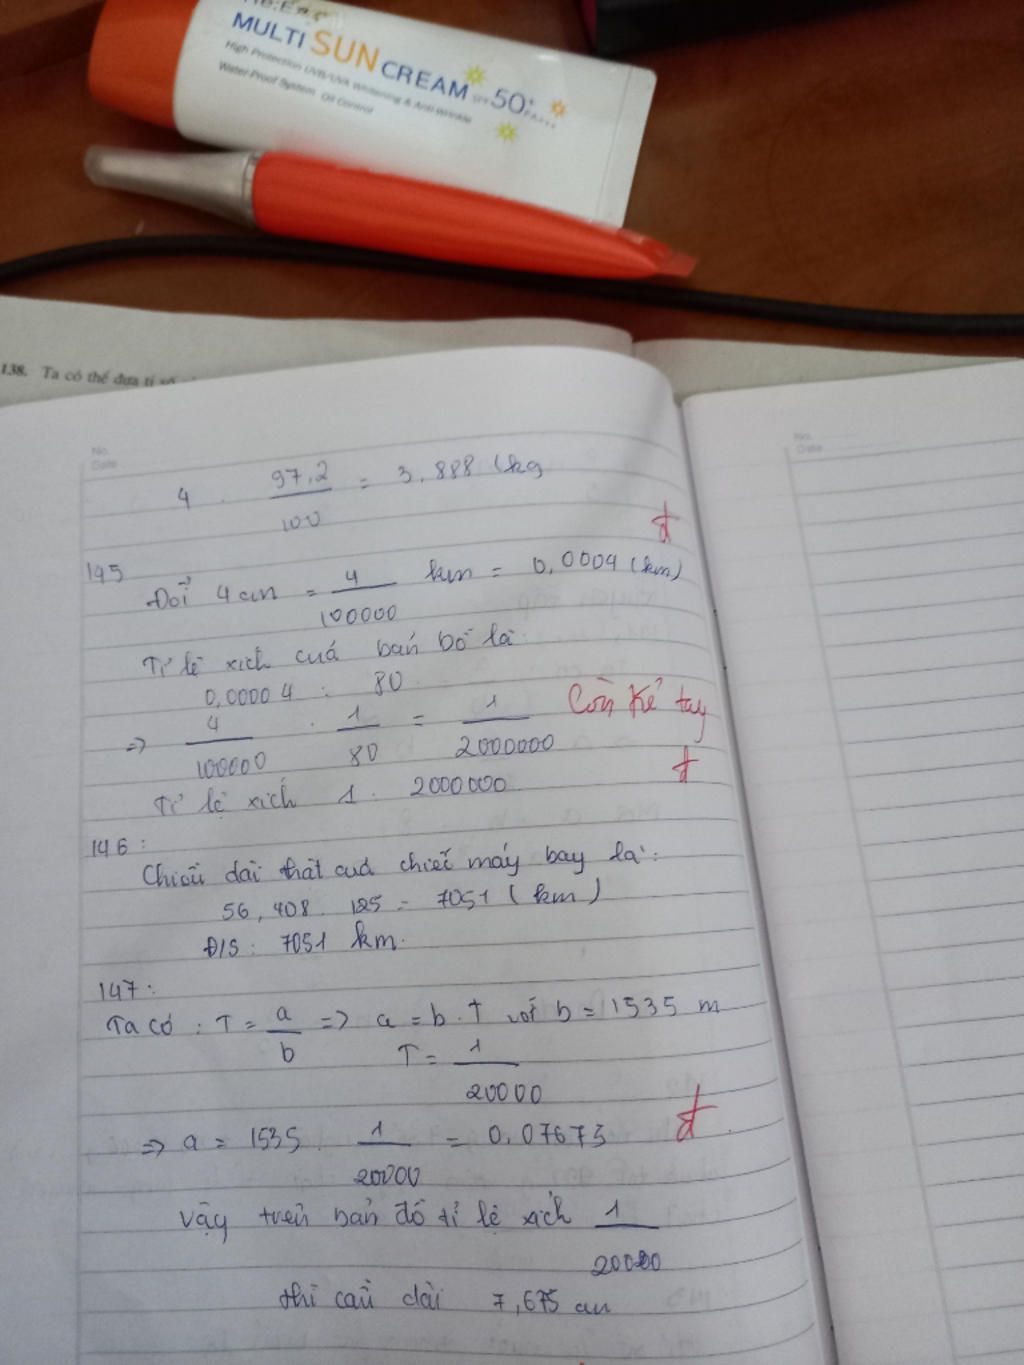 MULTI SUN CREAM SPF 50+ PA+++
High Protection UVB/UVA Whitening & Anti Wrinkle
Water-Proof System Oil Control
138. Ta có thể đưa tỉ số
No.
Date
No.
Date
4 . 97,2/100 = 3,888 (kg
đ
145
Đổi 4cm = 4/100000 km = 0,0004 (km)
Tỉ lệ xích cuả bản đồ là
0,00004 : 80
=> 4/100000 . 1/80 = 1/2000000
Còn kẻ tay
đ
Tỉ lệ xích 1 : 2000000
146 :
Chiều dài thật của chiếc máy bay là :
56,408 . 125 = 7051 (km)
Đ/S : 7051 km.
147 :
Ta có : T = a/b => a = b . T với b = 1535 m
T = 1/20000
=> a = 1535 . 1/20000 = 0,07675
đ
Vậy trên bản đồ tỉ lệ xích 1/20000
thì cầu dài 7,675 cm